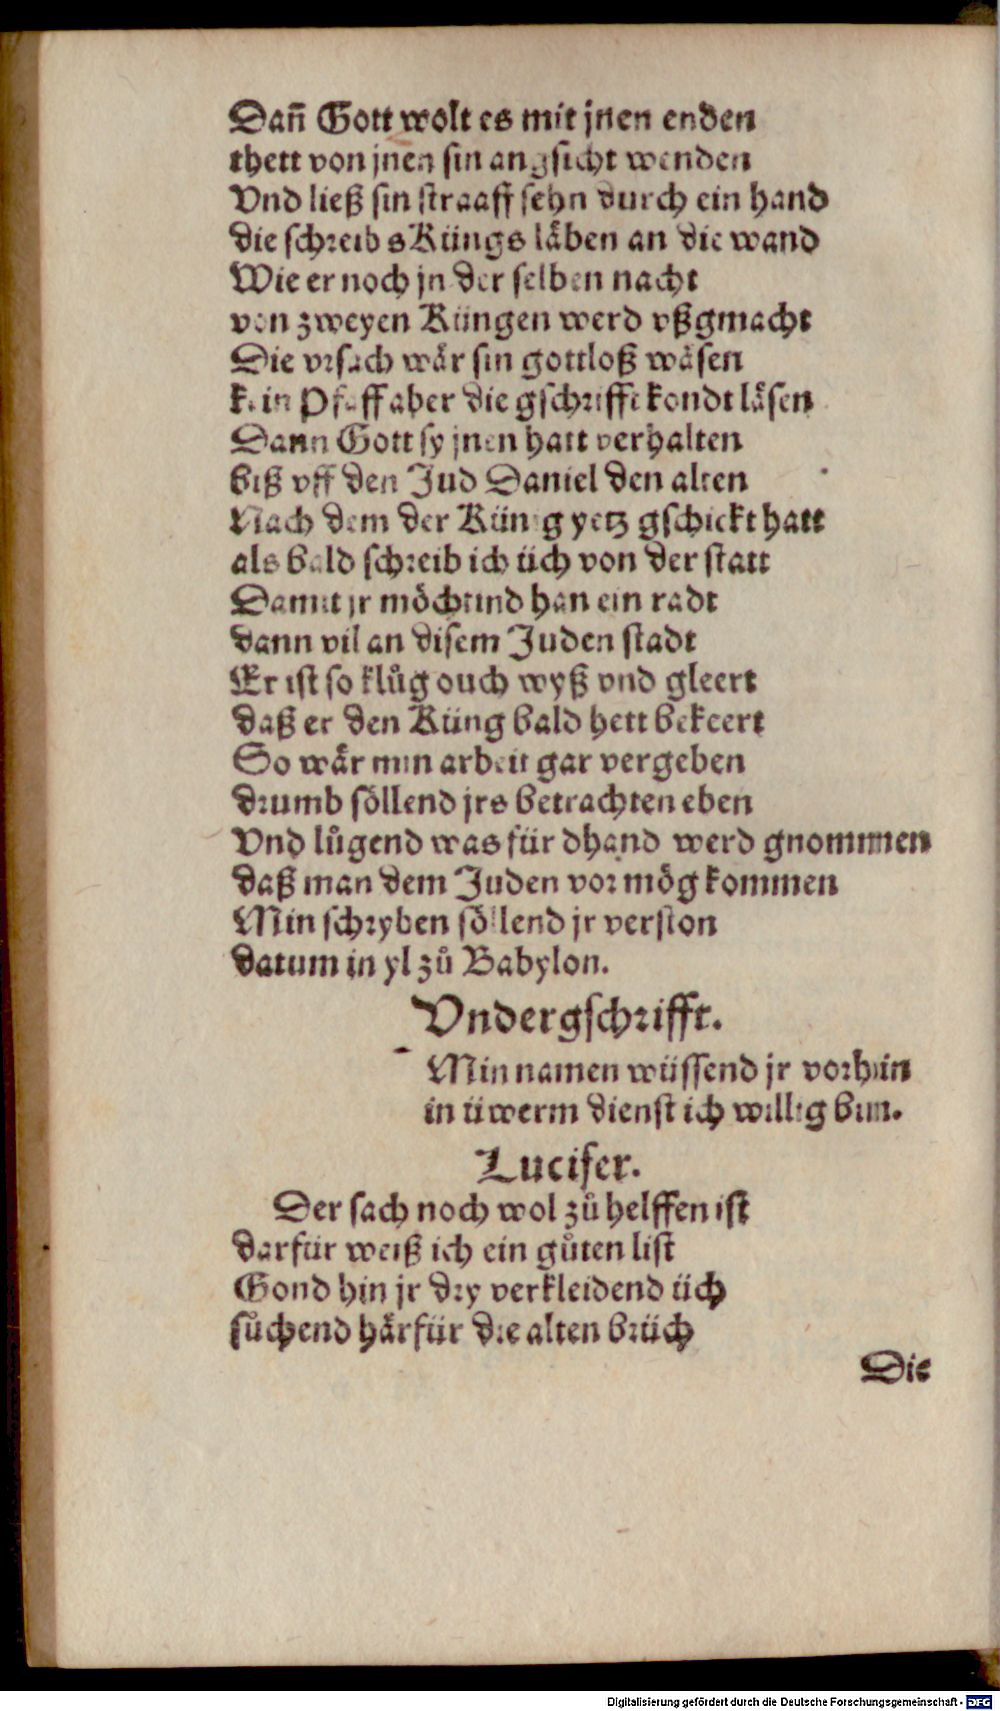 Dañ Gott wolt es mit jnen enden
thett von jnen sin angsicht wenden
Vnd ließ sin straaff sehn durch ein hand
die schreib s Küngs läben an die wand
Wie er noch jn der selben nacht
von zweyen Küngen werd vßgmacht
Die vrsach wär sin gottloß wäsen
kein Pfaff aber die gschrifft kondt läsen
Dann Gott sy jnen hatt verhalten
biß vff den Jud Daniel den alten
Nach dem der Künig yetz gschickt hatt
als bald schreib ich üch von der statt
Damit jr möchtind han ein radt
dann vil an disem Juden stadt
Er ist so klůg ouch wyß vnd gleert
daß er den Küng bald hett bekeert
So wär min arbeit gar vergeben
drumb söllend jrs betrachten eben
Vnd lůgend was für dhand werd gnommen
daß man dem Juden vor mög kommen
Min schryben söllend jr verston
datum in yl zů Babylon.
Vndergschrifft.
Min namen wüssend jr vorhin
in üwerm dienst ich willig bin.
Lucifer.
Der sach noch wol zů helffen ist
darfür weiß ich ein gůten list
Gond hin jr dry verkleidend üch
sůchend härfür die alten brüch
Die
Digitalisierung gefördert durch die Deutsche Forschungsgemeinschaft - DFG